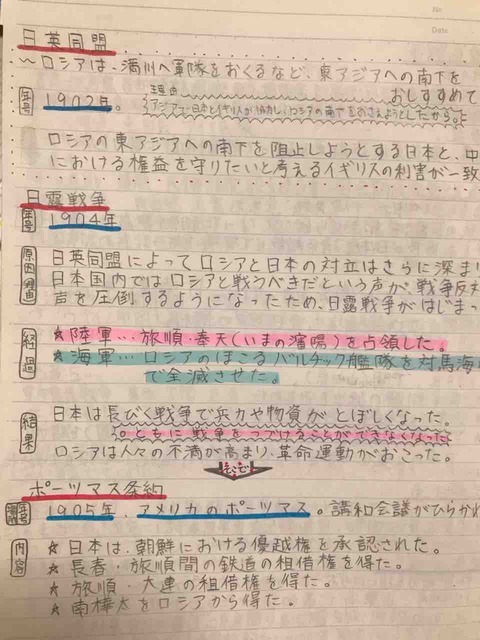 No.
Date
日英同盟
〜ロシアは、満州へ軍隊をおくるなど、東アジアへの南下を
おしすすめて
年号 1902年。
理由
アジアで日本とイギリスが協力し、ロシアの南下をおさえようとしたから。
ロシアの東アジアへの南下を阻止しようとする日本と、中
における権益を守りたいと考えるイギリスの利害が一致
日露戦争
年号 1904年
原因 日英同盟によってロシアと日本の対立はさらに深まり
日本国内ではロシアと戦うべきだという声が戦争反対
声を圧倒するようになったため、日露戦争がはじまっ
経過 ☆陸軍…旅順・奉天(いまの瀋陽)を占領した。
☆海軍…ロシアのほこるバルチック艦隊を対馬海
で全滅させた。
結果 日本は長びく戦争で兵力や物資がとぼしくなった。
ともに戦争をつづけることができなくなった
ロシアは人々の不満が高まり、革命運動がおこった。
そこで
ポーツマス条約
年号 1905年、アメリカのポーツマス。講和会議がひらかれ
内容 ☆日本は、朝鮮における優越権を承認された。
☆長春・旅順間の鉄道の租借権を得た。
☆旅順・大連の租借権を得た。
☆南樺太をロシアから得た。